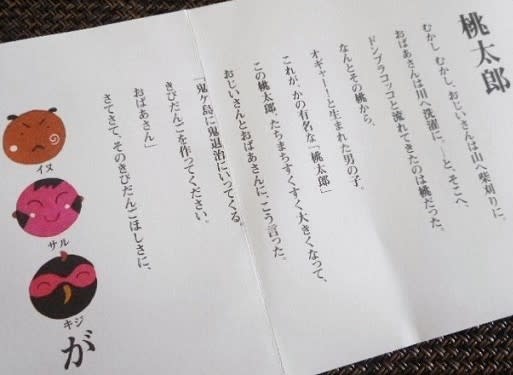 桃太郎
むかし むかし、おじいさんは山へ柴刈りに。
おばあさんは川へ洗濯に。…と、そこへ、
ドンブラコッコと流れてきたのは桃だった。
なんとその桃から、
オギャーー!と生まれた男の子。
これが、かの有名な「桃太郎」
この桃太郎、たちまちすくすく大きくなって、
おじいさんとおばあさんに、こう言った。
「鬼ヶ島に鬼退治にいってくる。
きびだんごを作ってください。
おばあさん」
さてさて、そのきびだんごほしさに、
イヌ
サル
キジ
が